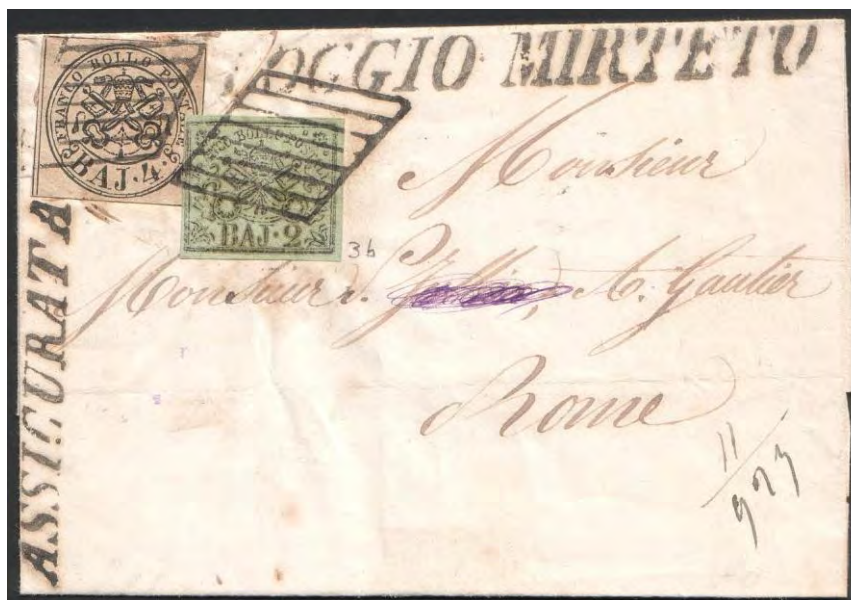 POGGIO MIRTETO
FRANCO BOLLO POSTALE
BAJ·4·
BAJ·2
3b
ASSICURATA
Monsieur
Monsieur A. Gautier
Rome
11